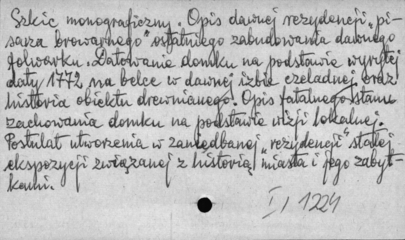 Szkic monograficzny. Opis dawnej rezydencji „pi-
sarza browarnego" ostatniego zabudowania dawnego
folwarku. Datowanie domku na podstawie wyrytej
daty 1772 na belce w dawnej izbie czeladnej oraz
historia obiektu drewnianego. Opis fatalnego stanu
zachowania domku na podstawie wizji lokalnej.
Postulat utworzenia w zaniedbanej „rezydencji" stałej
ekspozycji związanej z historią miasta i jego zabyt-
kami.
I, 1224